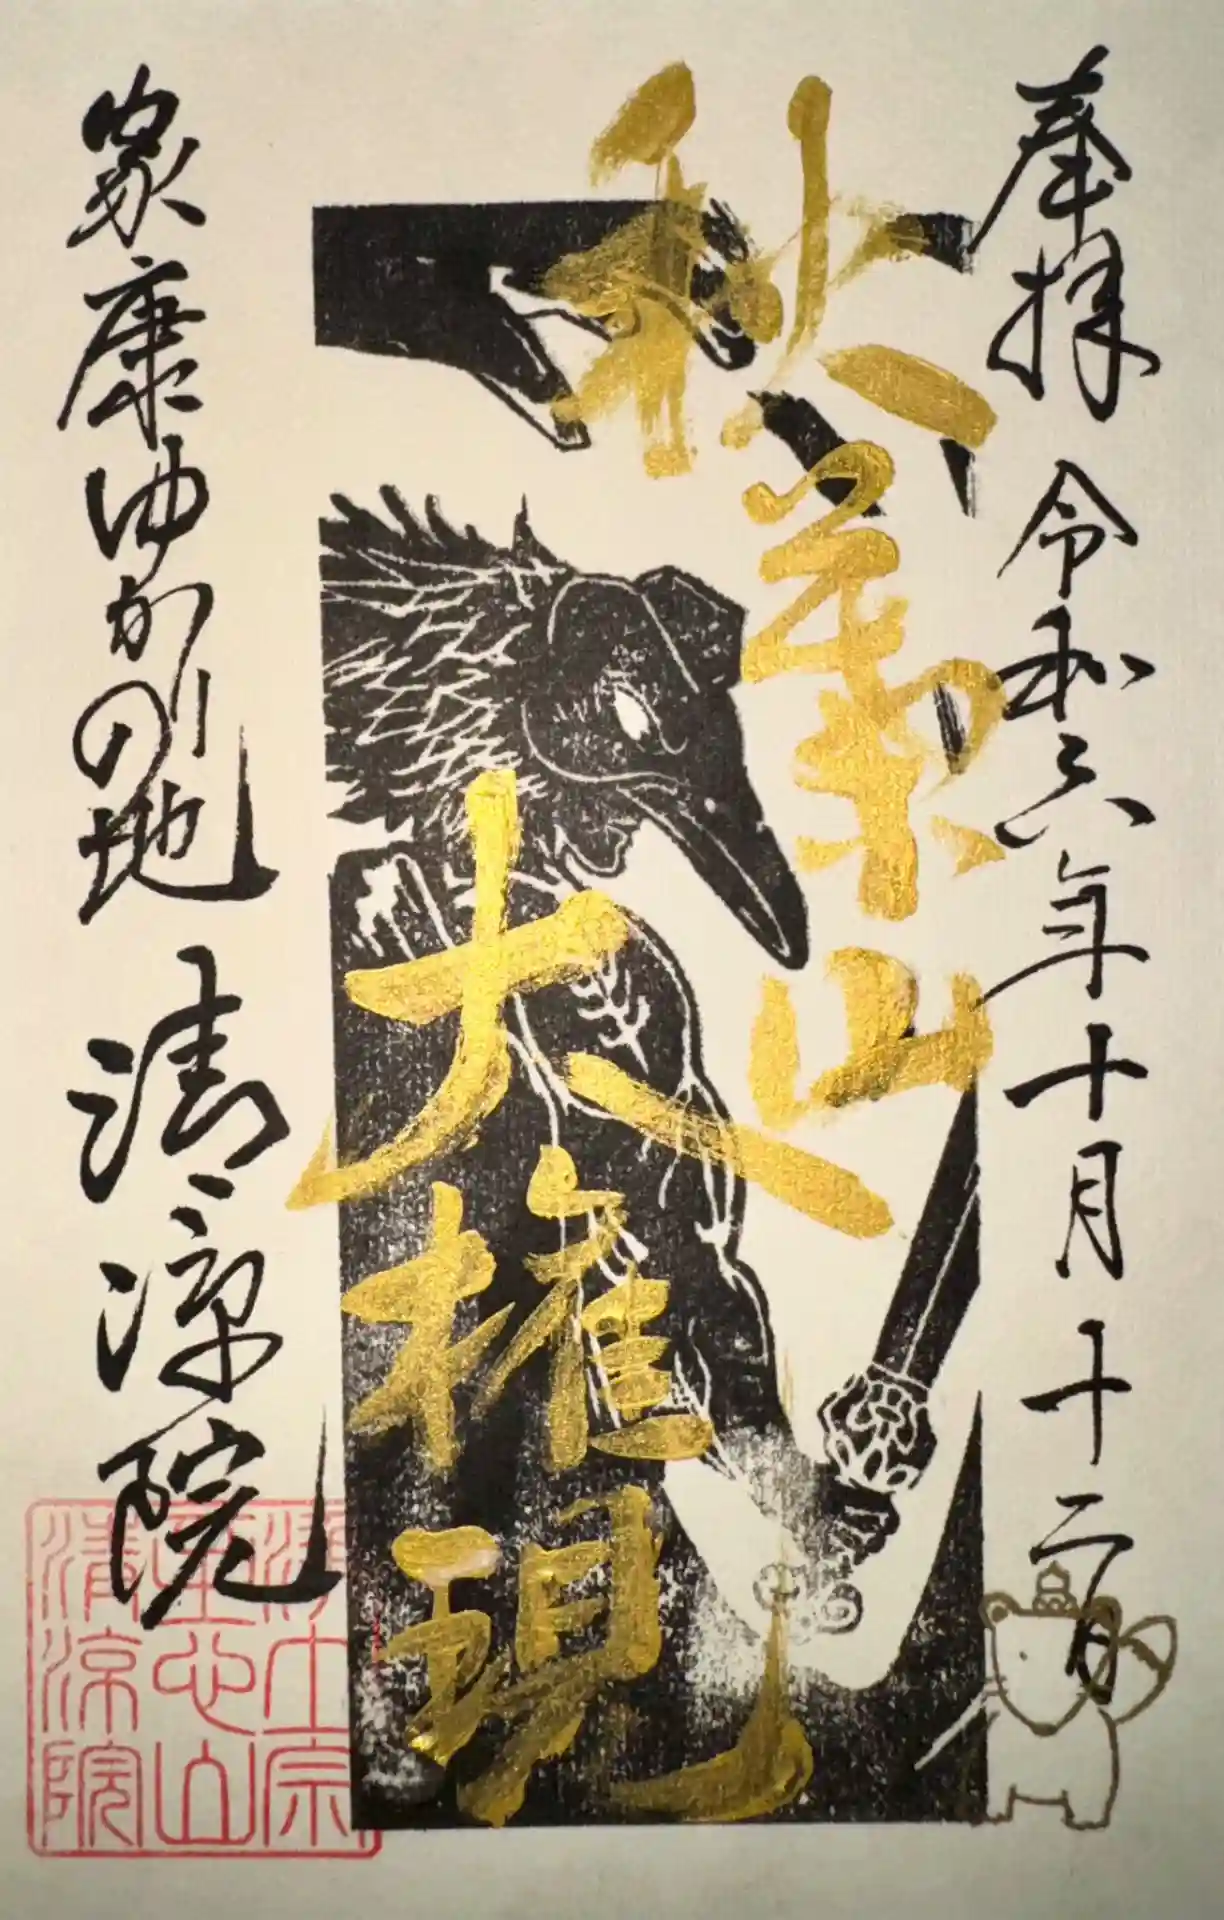 奉拝 令和六年十月十二日
秋葉山
大権現
家康ゆかりの地 清涼院
浄土宗
清涼院